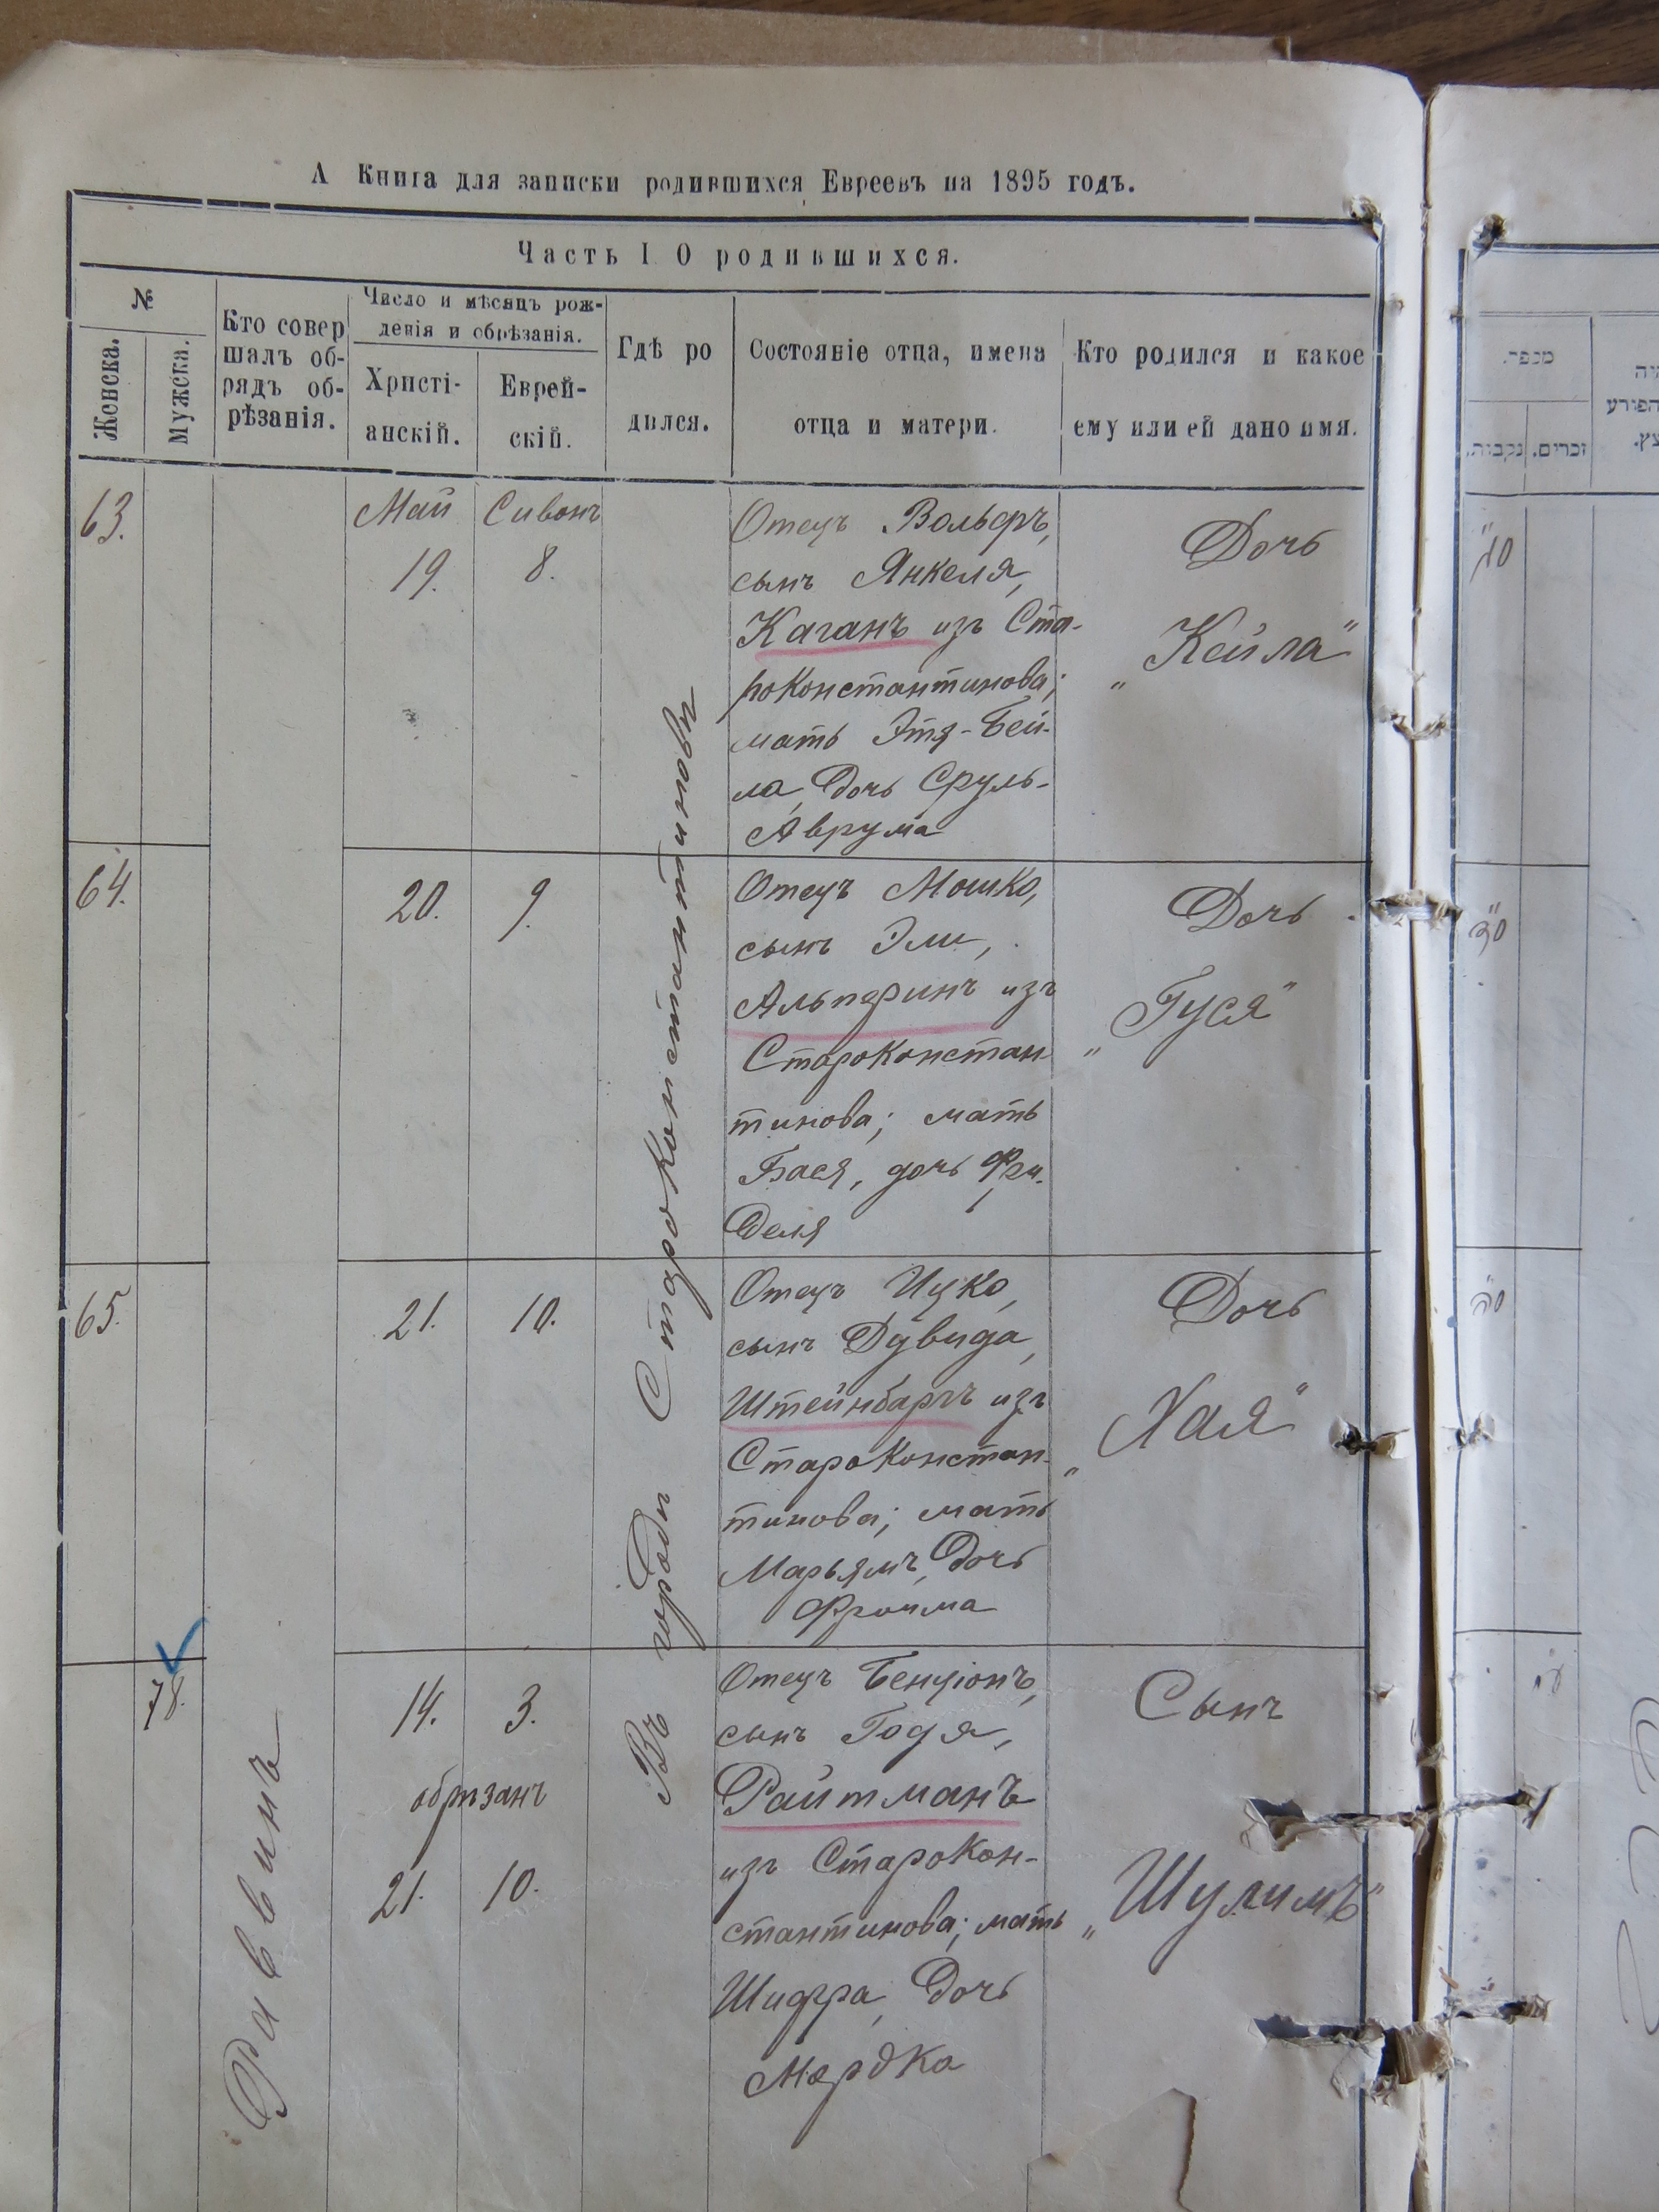 А Книга для записки родившихся Евреевъ на 1895 годъ.
Часть I О родившихся.
№
Женска.
Мужска.
Кто совер
шалъ об-
рядъ об-
рѣзанія.
Число и мѣсяцъ рож-
денія и обрѣзанія.
Христі-
анскій.
Еврей-
скій.
Гдѣ ро
дился.
Состояніе отца, имена
отца и матери.
Кто родился и какое
ему или ей дано имя.
63.
Май
19.
Сивонъ
8.
Отецъ Вольфъ,
сынъ Янкеля,
Каганъ изъ Ста-
роконстантинова;
мать Этя-Бей-
ла, дочь Сруль-
Аврума
Дочь
„Кейла"
64.
20.
9.
Отецъ Мошко,
сынъ Эли,
Альперинъ изъ
Староконстан
тинова; мать
Бася, дочь Фри-
деля
Дочь
„Гуся"
65.
21.
10.
Отецъ Ицко,
сынъ Дувида,
Штейнбаргъ изъ
Староконстан-
тинова; мать
Марьямъ, дочь
Фроима
Дочь
„Хая"
78.
14.
3.
обрѣзанъ
21.
10.
Отецъ Бенціонъ,
сынъ Годя,
Райтманъ
изъ Старокон-
стантинова; мать
Шифра, дочь
Мордка
Сынъ
„Шулимъ"
Раввинъ
Въ городѣ Староконстантиновѣ
מספר.
נקבות.
זכרים.
הפורע
ס"ג
ס"ד
ס"ה